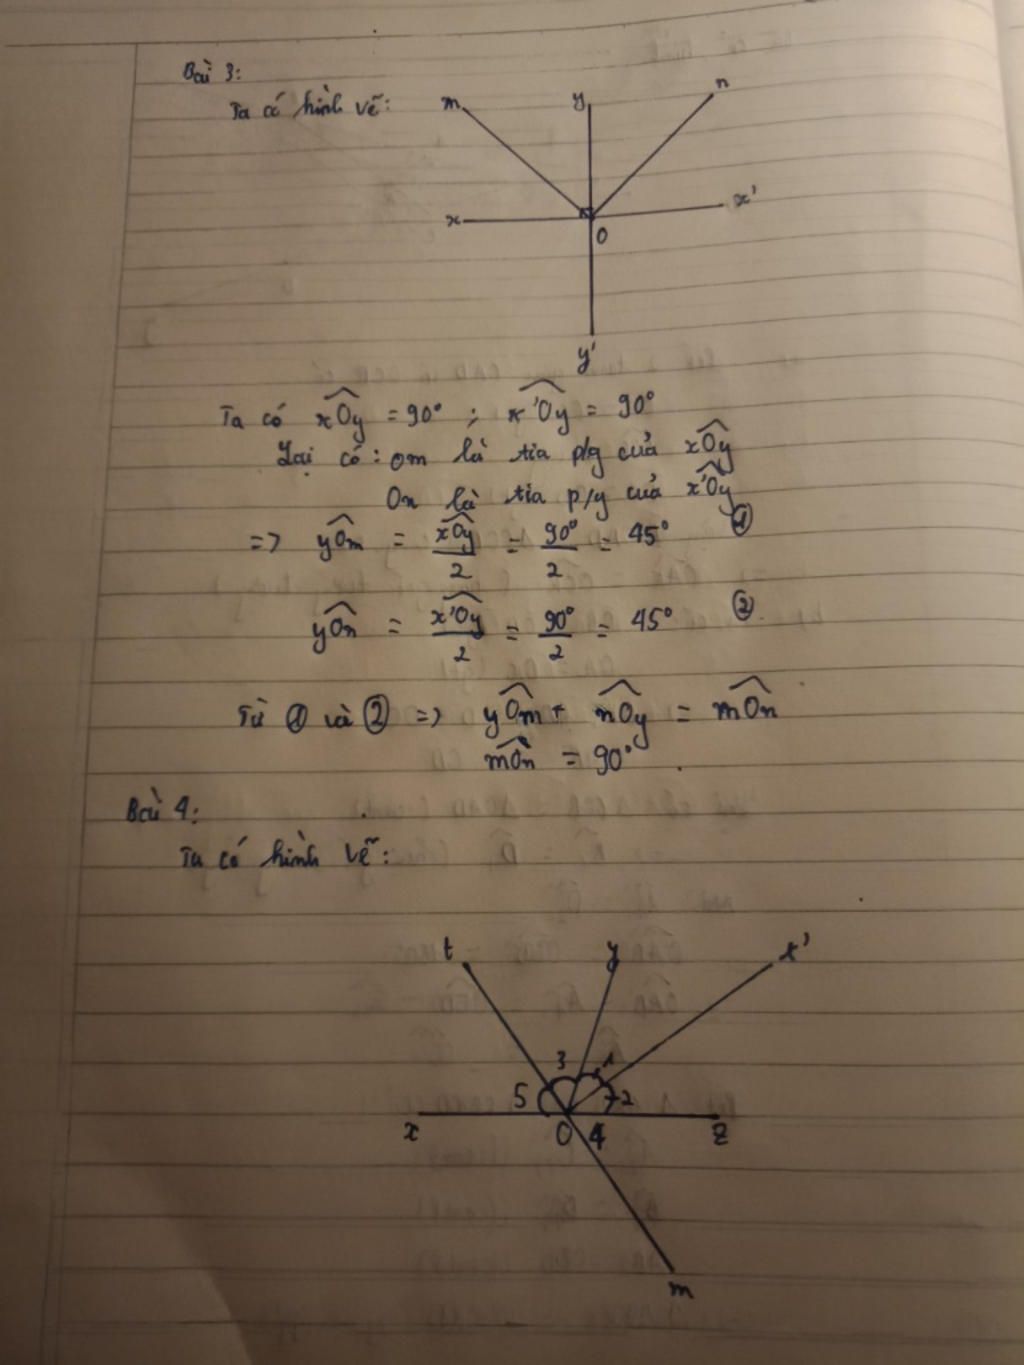 Bài 3:
Ta có hình vẽ:
m y n
x x'
O
y'
Ta có xOy = 90° ; x'Oy = 90°
Lại có: Om là tia p/g của xOy
On là tia p/g của x'Oy
=> yOm = xOy/2 = 90°/2 = 45° ①
yOn = x'Oy/2 = 90°/2 = 45° ②
Từ ① và ② => yOm + nOy = mOn
mOn = 90°.
Bài 4:
Ta có hình vẽ:
t y x'
3 1
5 2
x O 4 z
m